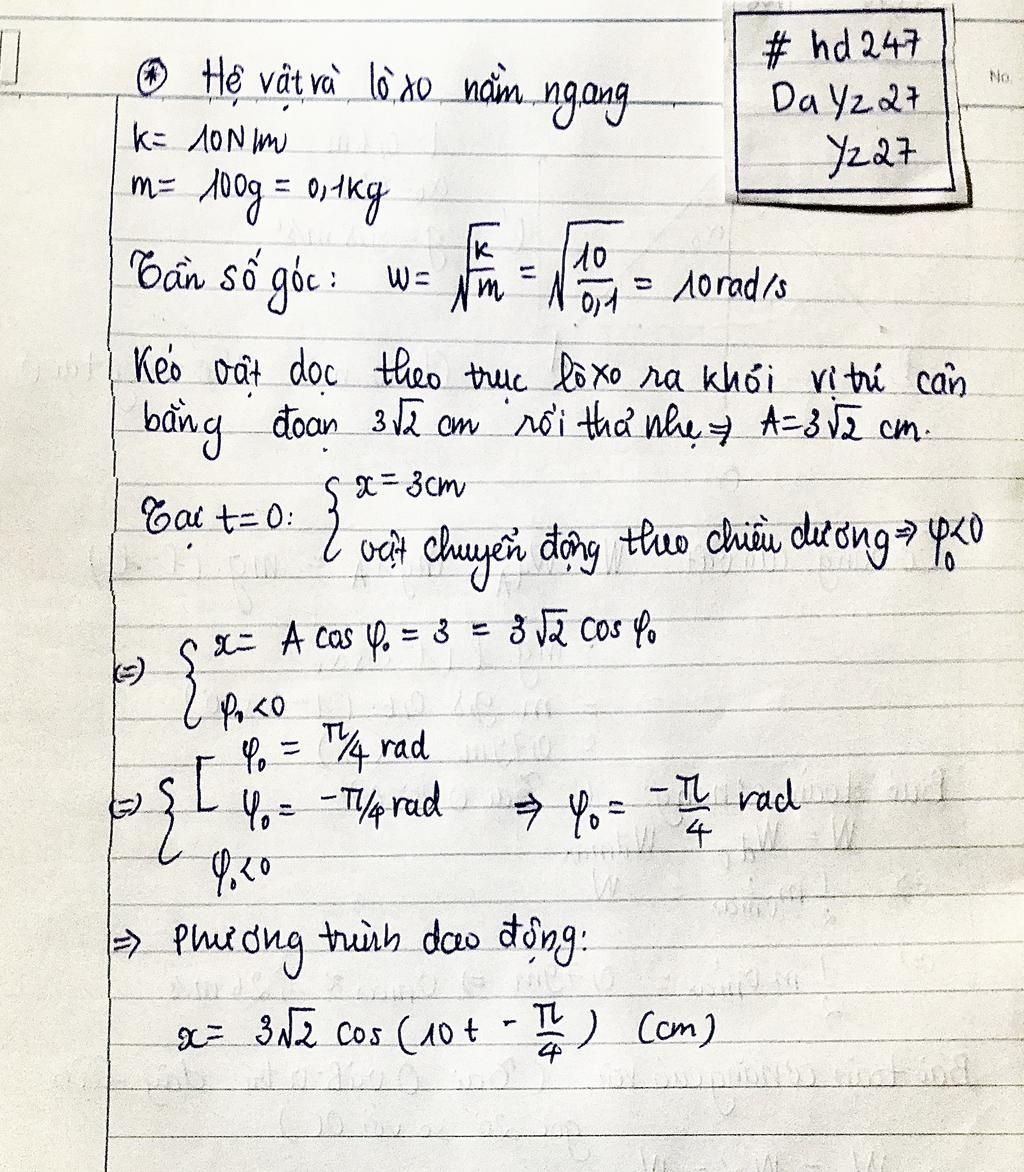 # hd 247
Da Yz 27
Yz 27
No.
⊛ Hệ vật và lò xo nằm ngang
k= 10N/m
m= 100g = 0,1kg
Tần số góc: w= √(k/m) = √(10/0,1) = 10 rad/s
Kéo vật dọc theo trục lò xo ra khỏi vị trí cân
bằng đoạn 3√2 cm rồi thả nhẹ ⇒ A=3√2 cm.
Tại t=0: { x = 3cm
vật chuyển động theo chiều dương ⇒ φ₀<0
(=) { x= A cos φ₀ = 3 = 3√2 cos φ₀
φ₀ <0
(=) { [ φ₀ = π/4 rad
φ₀ = -π/4 rad ⇒ φ₀ = -π/4 rad
φ₀<0
⇒ Phương trình dao động:
x= 3√2 cos (10t - π/4) (cm)